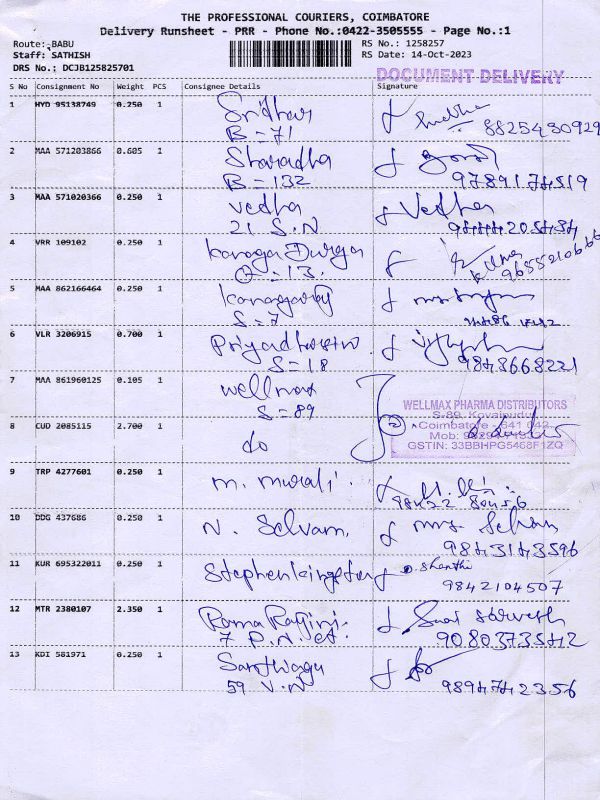 THE PROFESSIONAL COURIERS, COIMBATORE
Delivery Runsheet - PRR - Phone No.:0422-3505555 - Page No.:1
Route: BABU
RS No.: 1258257
Staff: SATHISH
RS Date: 14-Oct-2023
DRS No.: DCJB125825701
DOCUMENT DELIVERY
S No Consignment No Weight PCS Consignee Details Signature
1 HYD 95138749 0.250 1 Sridhar Sudha
B = 71 8825430929
2 MAA 571203866 0.605 1 Sharadha
B = 132 9789174519
3 MAA 571020366 0.250 1 Vedha Vedha
21 S.N
4 VRR 109102 0.250 1 Kanaga Durga
13. 9655210666
5 MAA 862166464 0.250 1
S = 7
6 VLR 3206915 0.700 1
S = 18 9843668221
7 MAA 861960125 0.105 1 wellmax
S = 89
WELLMAX PHARMA DISTRIBUTORS
S-89, Kovaipudur
8 CUD 2085115 2.700 1 do
Coimbatore - 641 042
Mob:
GSTIN: 33BBHPG5468F1ZQ
9 TRP 4277601 0.250 1 M. Murali.
98422 80456
10 DDG 437686 0.250 1 N. Selvam. Mrs. Selvam
9843143596
11 KUR 695322011 0.250 1 Shanthi
9842104507
12 MTR 2380107 2.350 1 Rama Ragini. Sarvesh
7 P.N. 9080373542
13 KDI 581971 0.250 1
59 V.N 9894742356